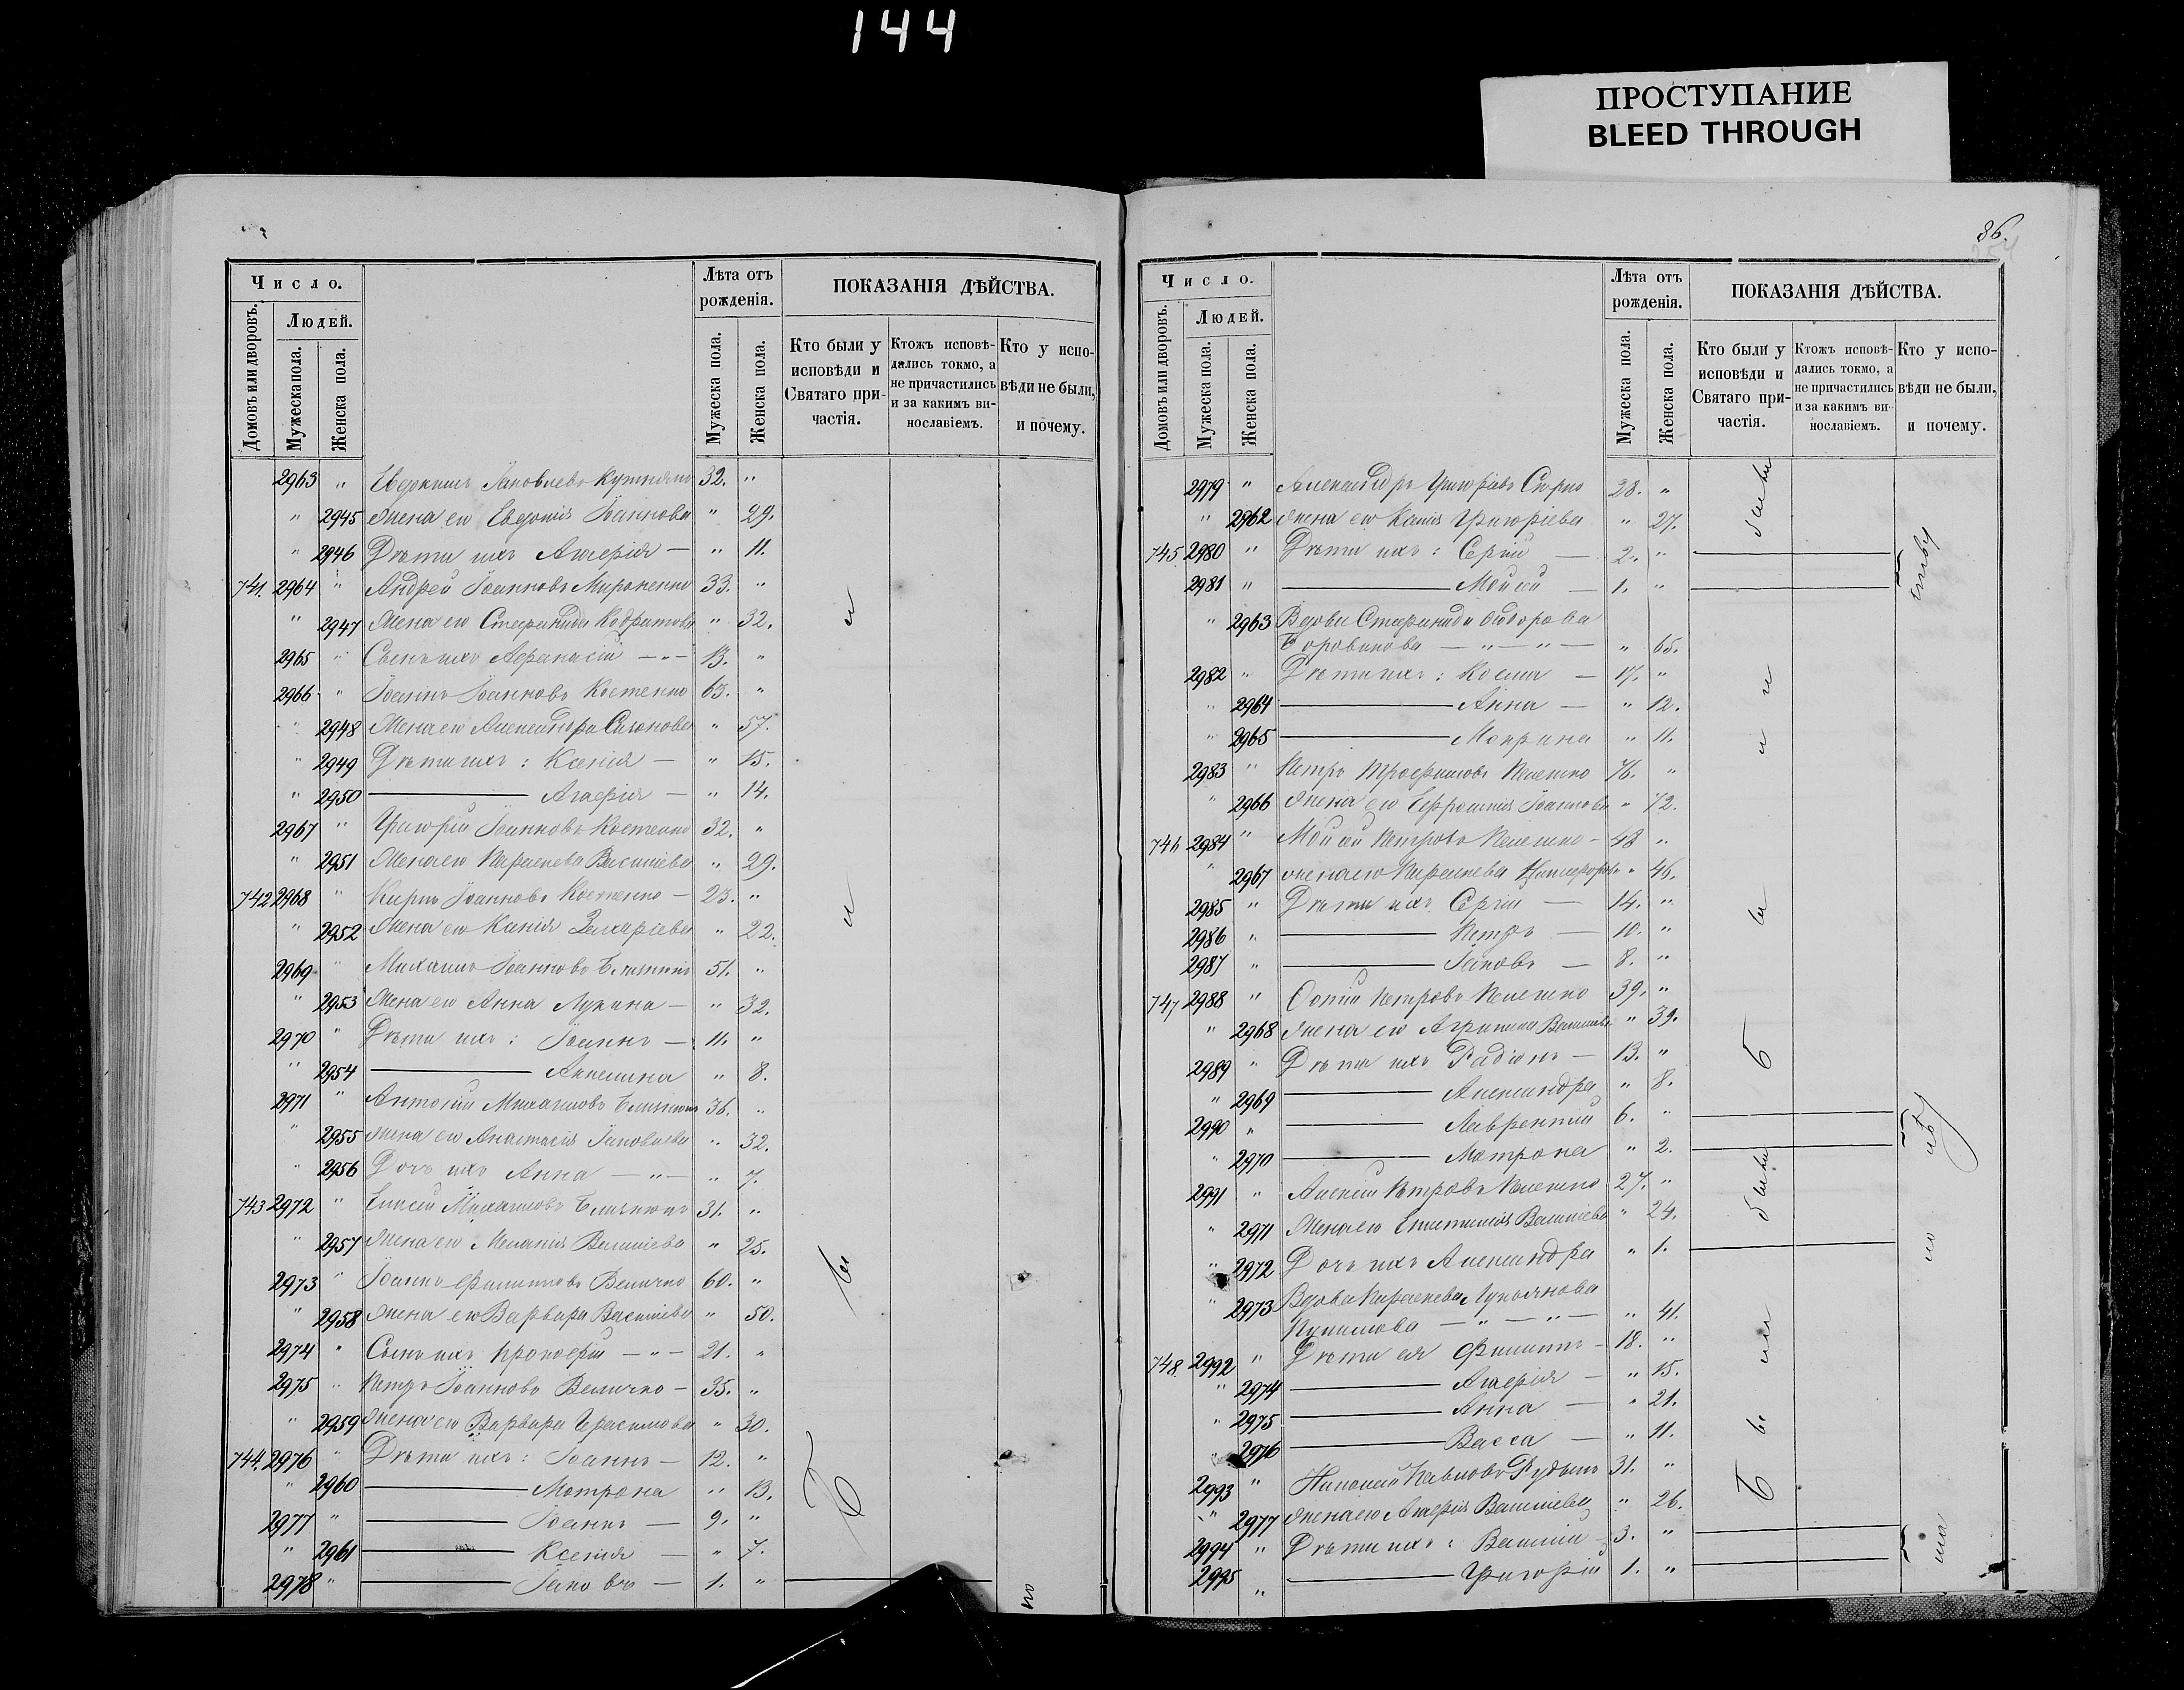 144
ПРОСТУПАНИЕ
BLEED THROUGH
Число.
Лѣта отъ рожденія.
ПОКАЗАНІЯ ДѢЙСТВА.
Домовъ или дворовъ.
Людей.
Мужеска пола.
Женска пола.
Мужеска пола.
Женска пола.
Кто были у исповѣди и Святаго причастія.
Ктожъ исповѣдались токмо, а не причастились и за какимъ винословіемъ.
Кто у исповѣди не были, и почему.
2963 " Іаковлевъ 32. "
" 2945 Жена его Евдокія Іоаннова " 29.
" 2946 Дѣти ихъ Агафія — " 11.
741. 2964 " Андрей Іоанновъ Мироненко 33. "
" 2947 Жена его Стефанида Кодратова " 32.
2965 " Сынъ ихъ Афанасій — " — 13. "
2966 " Іоаннъ Іоанновъ Костенко 63. "
" 2948 Жена его Александра " 57.
" 2949 Дѣти ихъ: Ксенія — " 15.
" 2950 — Агафія — " 14.
2967 " Григорій Іоанновъ Костенко 32. "
" 2951 Жена его Параскева Василіева " 29.
742 2968 " Кирилъ Іоанновъ Костенко — 23. "
" 2952 Жена его Ксенія Захаріева " 22.
2969 " Михаилъ Іоанновъ 51. "
" 2953 Жена его Анна Лукина — " 32.
2970 " Дѣти ихъ: Іоаннъ — 11. "
" 2954 — Акилина " 8.
2971 " Антоній Михаиловъ 36. "
" 2955 Жена его Анастасія Іаковлева " 32.
" 2956 Дочь ихъ Анна — " — " 7.
743 2972 " Елисей Михаиловъ 31. "
" 2957 Жена его Меланія Василіева " 25.
2973 " Іоаннъ Филиповъ Величко 60. "
" 2958 Жена его Варвара Василіева " 50.
2974 " Сынъ ихъ Прокофій — " — 21. "
2975 " Петръ Іоанновъ Величко — 35. "
" 2959 Жена его Варвара Герасимова " 30.
744. 2976 " Дѣти ихъ: Іоаннъ — 12. "
" 2960 — Мотрона " 13.
2977 " — Іоаннъ — 9. "
" 2961 — Ксенія — " 7.
2978 " — Іаковъ — 1. "
86.
Число.
Лѣта отъ рожденія.
ПОКАЗАНІЯ ДѢЙСТВА.
Домовъ или дворовъ.
Людей.
Мужеска пола.
Женска пола.
Мужеска пола.
Женска пола.
Кто были у исповѣди и Святаго причастія.
Ктожъ исповѣдались токмо, а не причастились и за какимъ винословіемъ.
Кто у исповѣди не были, и почему.
2979 " Александръ Григоріевъ 28. "
" 2962 Жена его Григоріева " 27.
745 2980 " Дѣти ихъ: Сергій — 2. "
2981 " — Мойсей — 1. "
" 2963 Вдова Стефанида Ѳеодорова
Боровикова — " — " — " 65.
2982 " Дѣти ихъ: Косма — 17. "
" 2964 — Анна — " 12.
" 2965 — Мокрина " 11.
2983 " Петръ Трофимовъ 76. "
" 2966 Жена его Ефросинія Іоаннова " 72.
746 2984 " Мойсей Петровъ — 48 "
" 2967 Жена его Параскева Никифорова " 46.
2985 " Дѣти ихъ Сергій — 14. "
2986 " — Петръ — 10. "
2987 " — Іаковъ — 8. "
747 2988 " Петровъ 39. "
" 2968 Жена его Агрипина " 39.
2989 " Дѣти ихъ Радіонъ — 13. "
" 2969 — Александра " 8.
2990 " — Лаврентій 6. "
" 2970 — Мотрона " 2.
2991 " Алексій Петровъ 27. "
" 2971 Жена его " 24.
" 2972 Дочь ихъ Александра " 1.
" 2973 Вдова Параскева Лукьянова
— " — " — " 41.
748. 2992 " Дѣти ея Филиппъ — 18. "
" 2974 — Агафія — " 15.
" 2975 — Анна — " 21.
" 2976 — Васса — " 11.
2993 " Николай Павловъ 31. "
" 2977 Жена его Агафія Василіева " 26.
2994 " Дѣти ихъ: Василій — 3. "
2995 " — Григорій 1. "